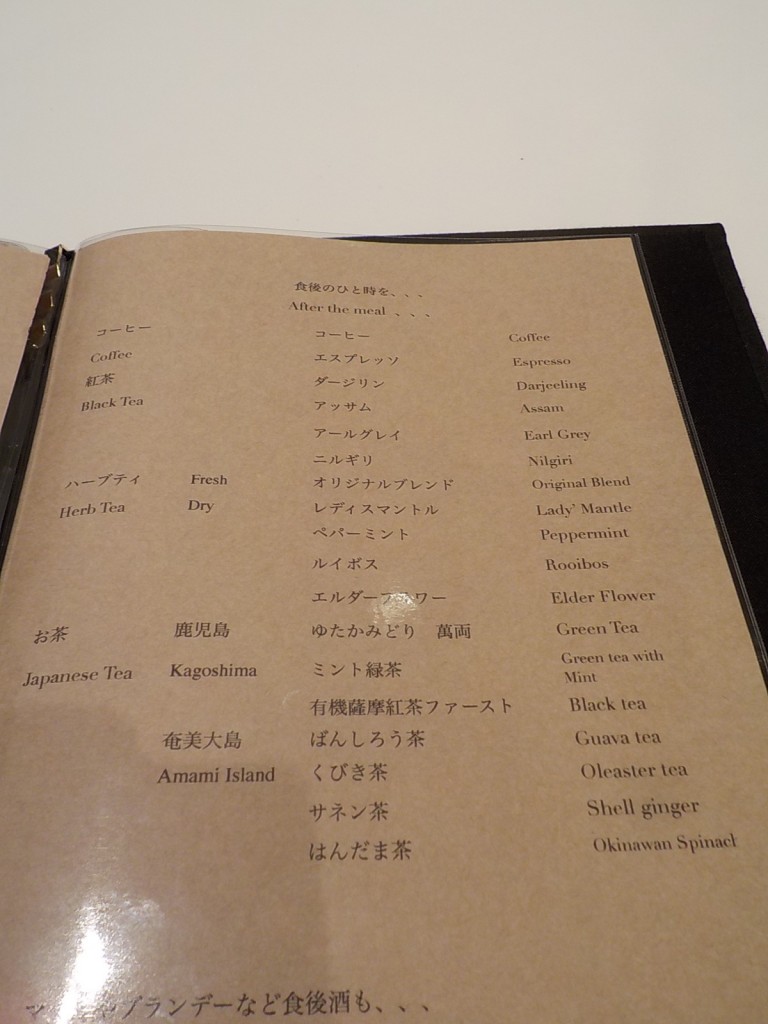 食後のひと時を、、、
After the meal 、、、
コーヒー コーヒー Coffee
Coffee エスプレッソ Espresso
紅茶 ダージリン Darjeeling
Black Tea アッサム Assam
アールグレイ Earl Grey
ニルギリ Nilgiri
ハーブティ Fresh オリジナルブレンド Original Blend
Herb Tea Dry レディスマントル Lady' Mantle
ペパーミント Peppermint
ルイボス Rooibos
エルダーフラワー Elder Flower
お茶 鹿児島 ゆたかみどり 萬両 Green Tea
Japanese Tea Kagoshima ミント緑茶 Green tea with
Mint
有機薩摩紅茶ファースト Black tea
奄美大島 ばんしろう茶 Guava tea
Amami Island くびき茶 Oleaster tea
サネン茶 Shell ginger
はんだま茶 Okinawan Spinach
ブランデーなど食後酒も、、、